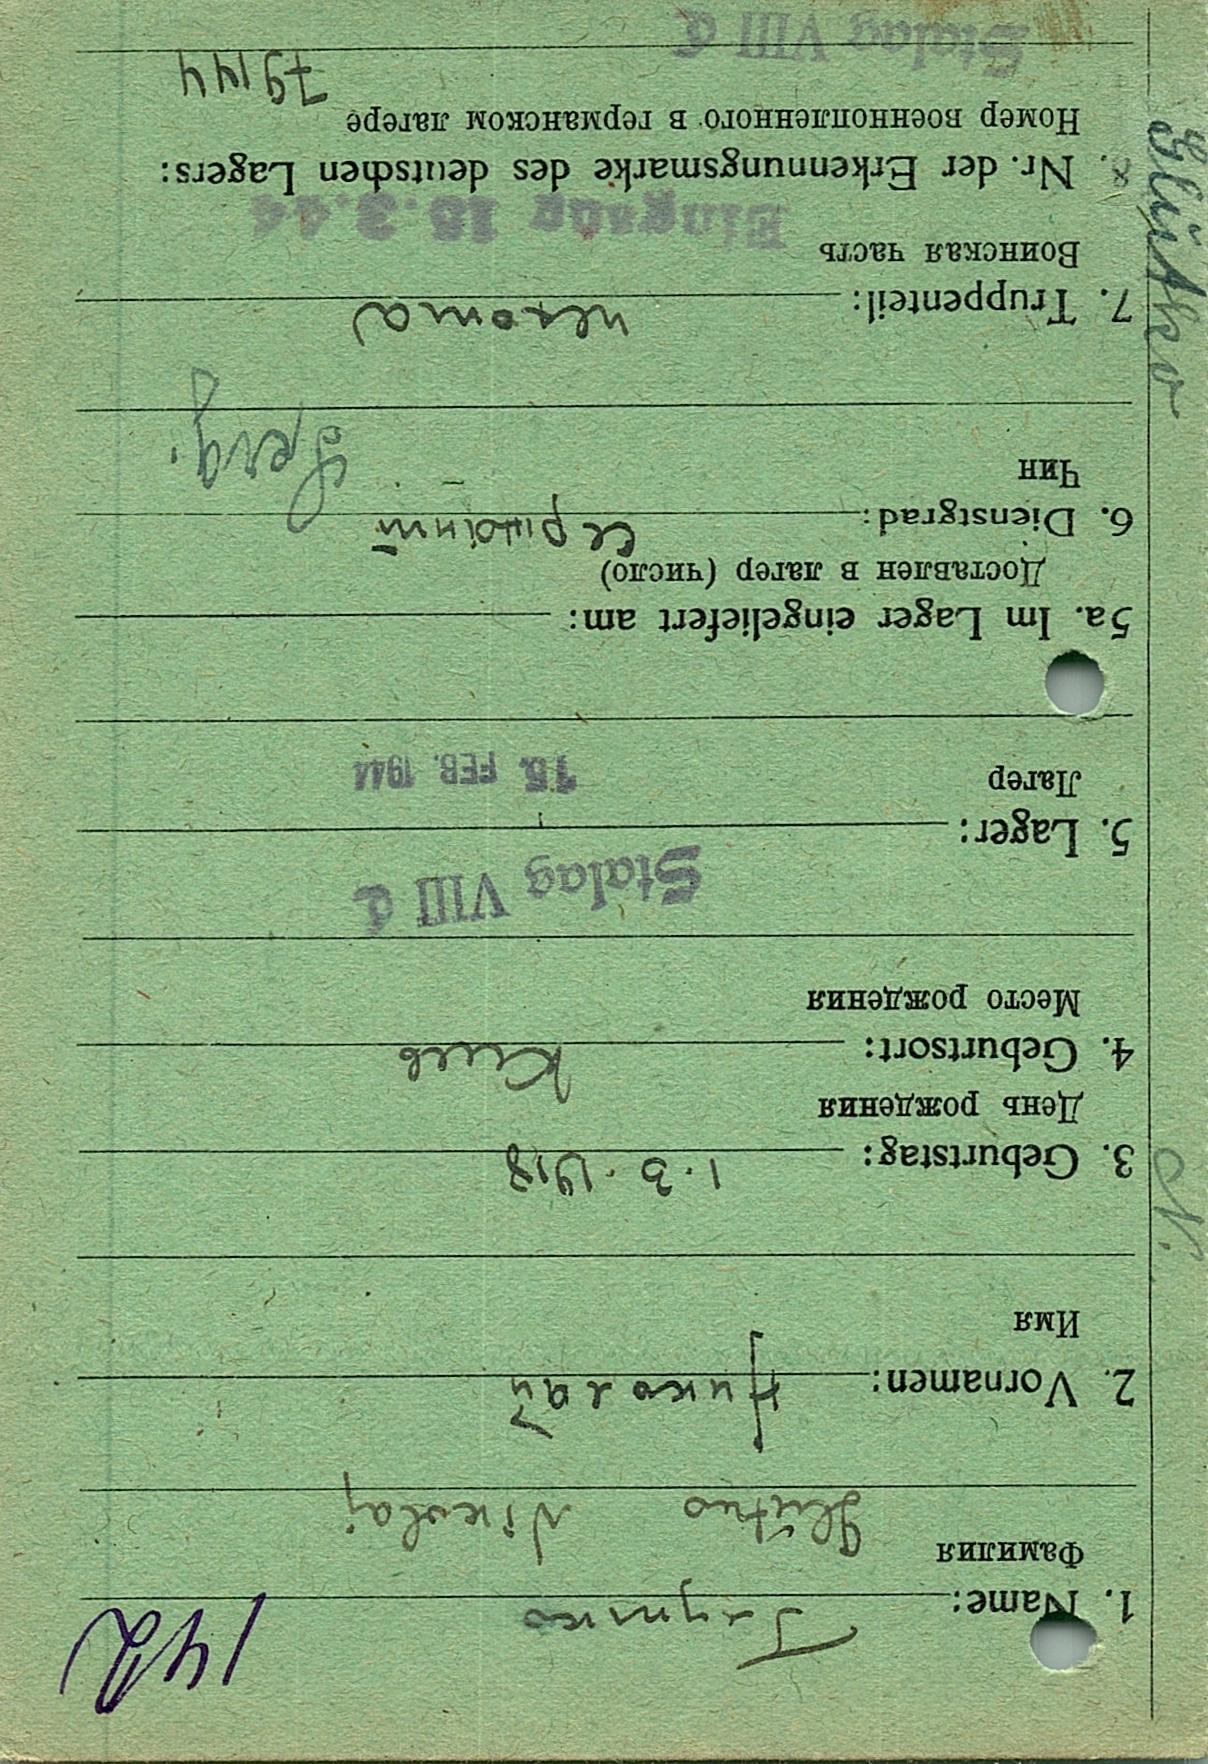 142
1. Name: Глутко
Фамилия
Glutko Nikolaj
2. Vornamen: Николай
Имя
3. Geburtstag: 1.3.1918
День рождения
4. Geburtsort: Киев
Место рождения
Stalag VIII C
5. Lager:
Лагер
15. FEB. 1944
5a. Im Lager eingeliefert am:
Доставлен в лагер (число)
6. Dienstgrad: Сержант
Чин
Serg.
7. Truppenteil: пехота
Воинская часть
Eingang 15.3.44
8. Nr. der Erkennungsmarke des deutschen Lagers:
Номер военнопленного в германском лагере
79144
Stalag VIII C
N. Glutko